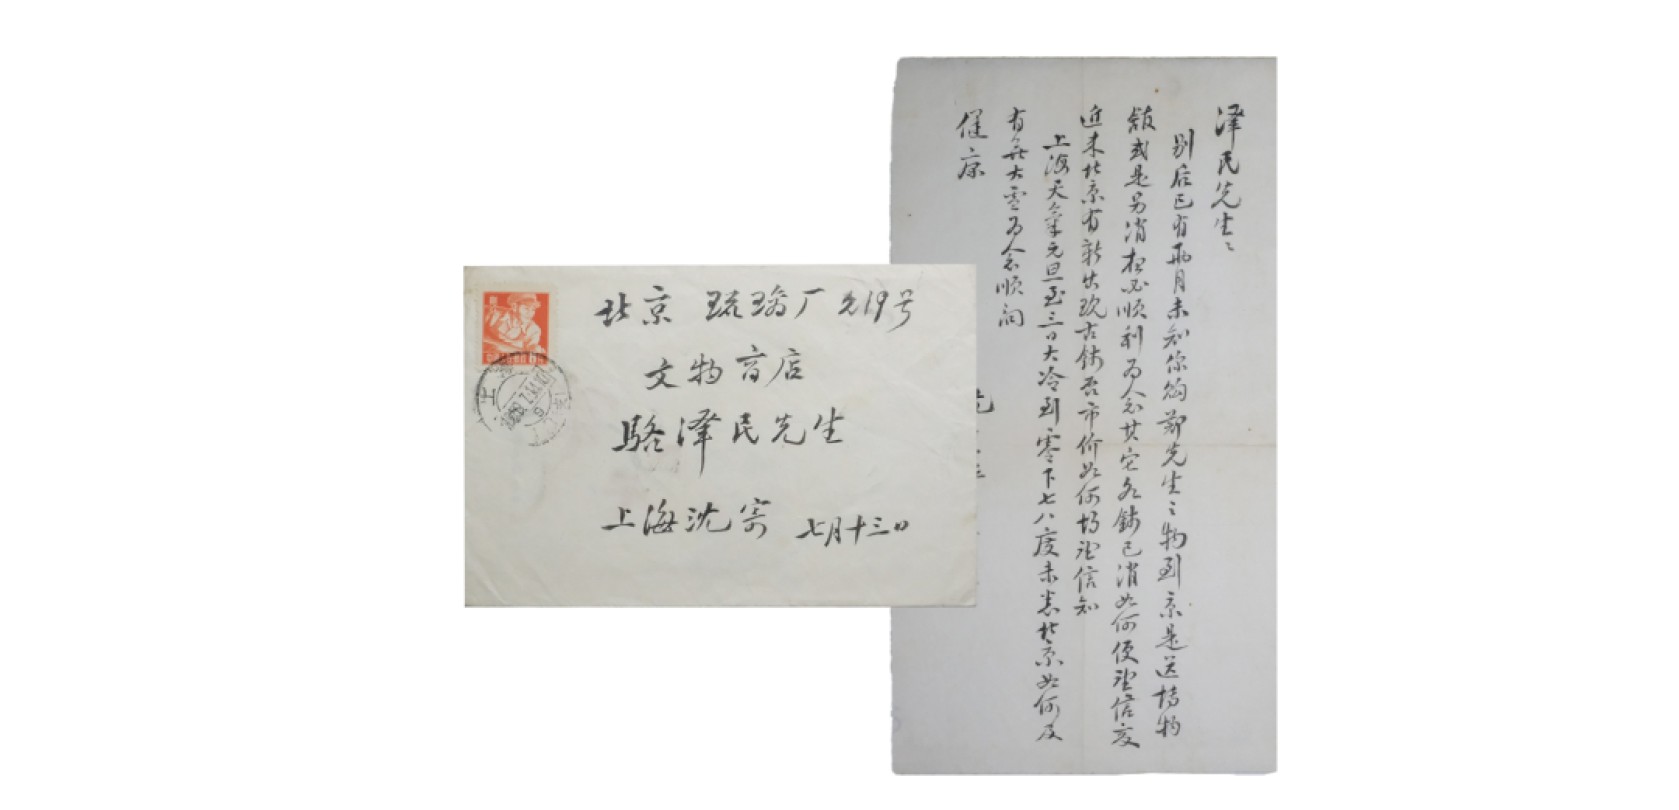 北京 琉璃厂 乙19号
文物商店
骆泽民先生
上海沈寄 七月十三日
泽民先生：
别后已有两月未知你购郑先生之物到京是送博物
馆或是另消想必顺利为念其它各钱已消如何便望信交
近来北京有新出现古钱否市价如何均望信知
上海天气元旦至三日大冷到零下七八度未悉北京如何及
有无大雪为念顺问
健康